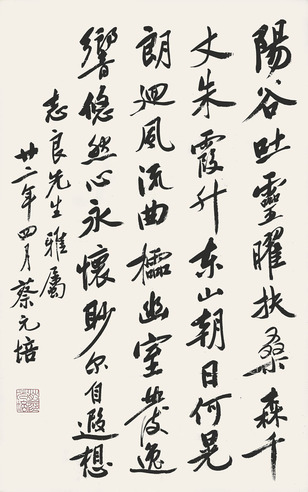 陽谷吐靈曜扶桑森千
丈朱霞升東山朝日何晃
朗迴風流曲櫺幽室發逸
響悠然心永懷眇尔自遐想
志良先生雅屬
廿二年四月蔡元培